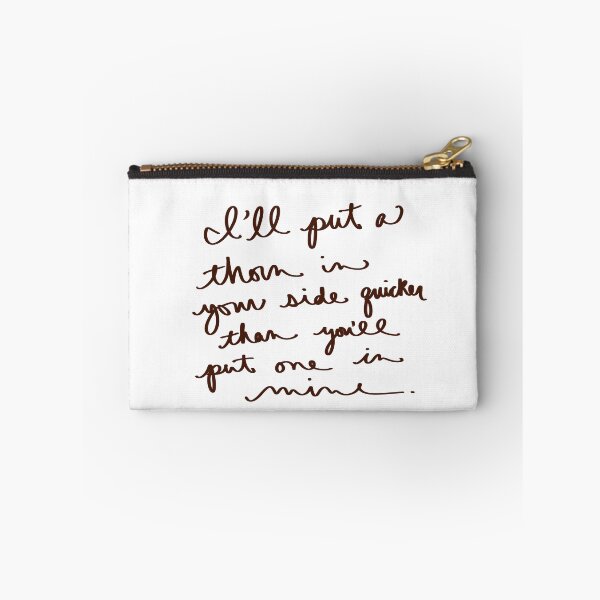 I'll put a
thorn in
your side quicker
than you'll
put one in
mine.